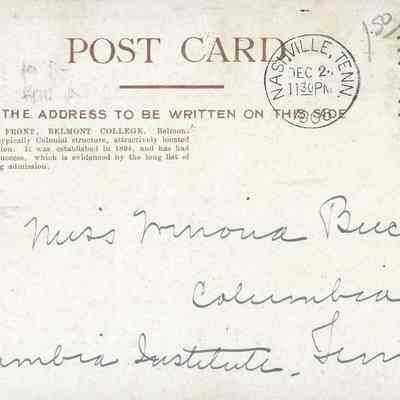 1.50
POST CARD
NASHVILLE, TENN.
DEC 2
1130 PM
1908
THE ADDRESS TO BE WRITTEN ON THIS SIDE
FRONT, BELMONT COLLEGE. Belmon
ypically Colonial structure, attractively located
ion. It was established in 1894, and has had
uccess, which is evidenced by the long list of
g admission.
Miss Winona Buc
Columbia
umbia Institute. Tenn